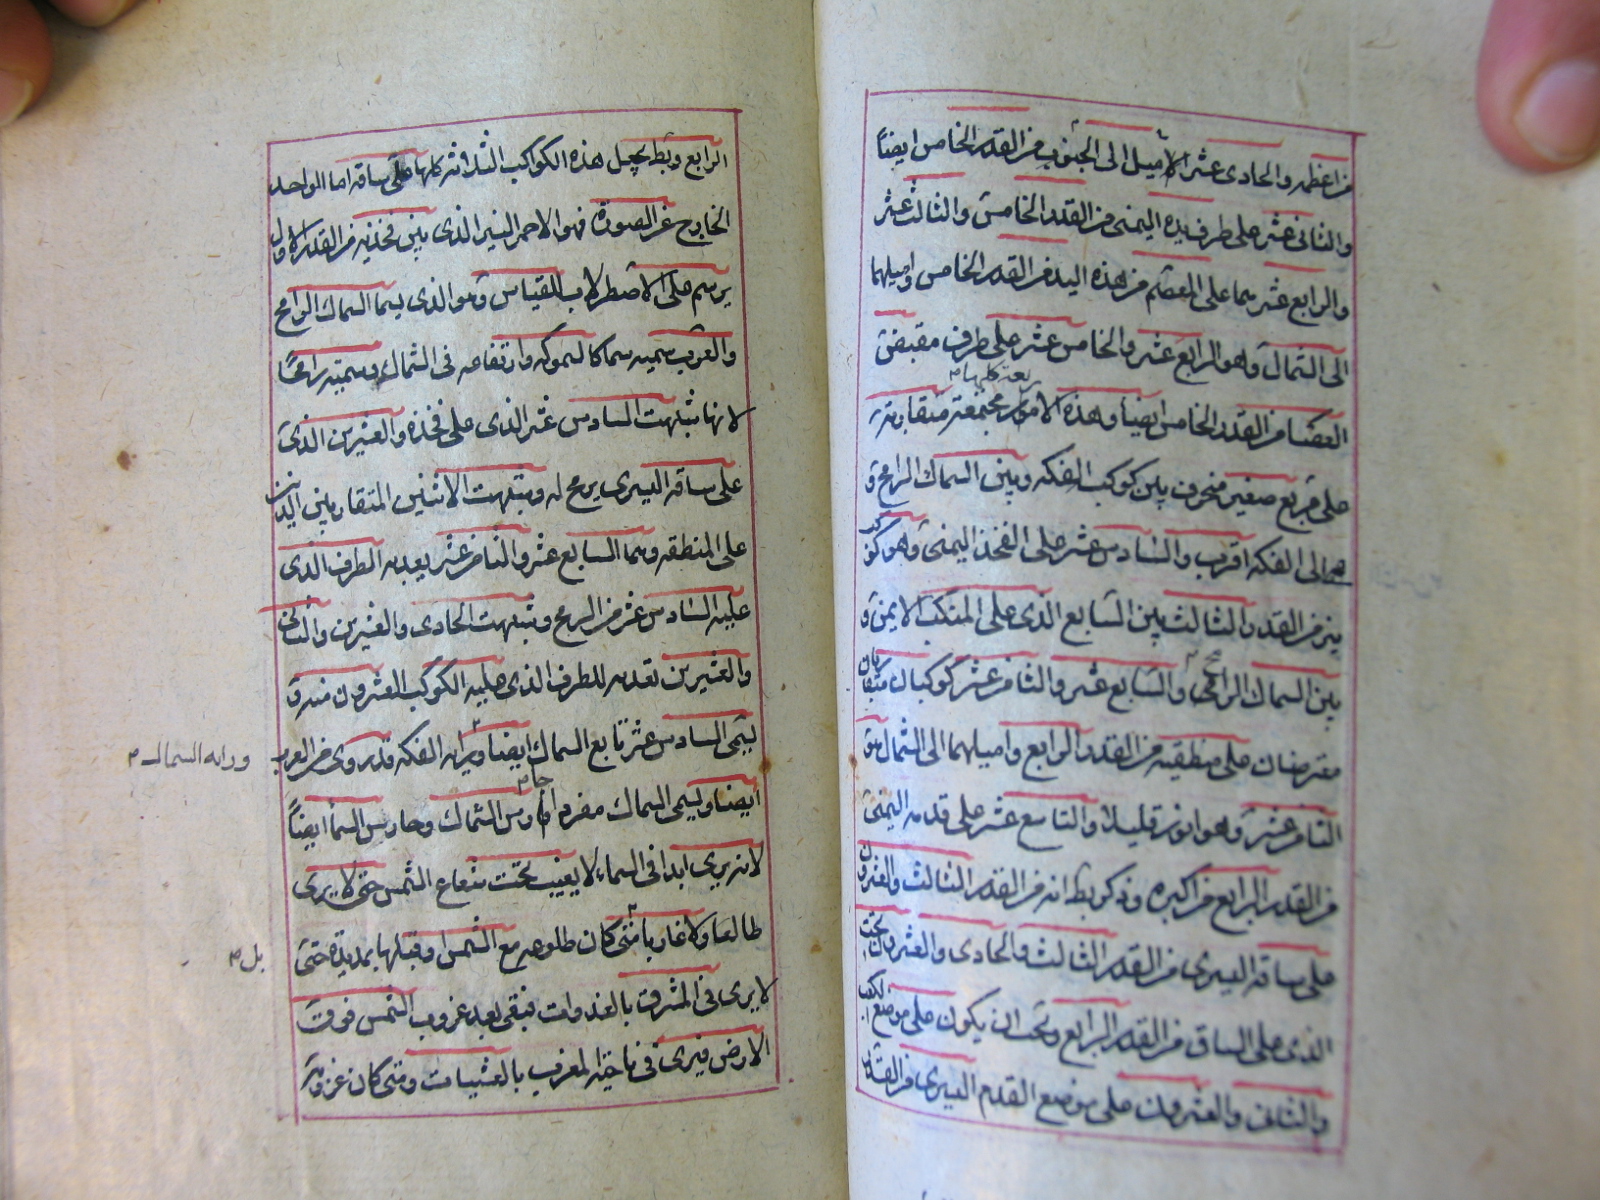 من اعظمه والحادى عشر الاميل الى الجنوب من القدر الخامس ايضاً
والثانى عشر على طرف يده اليمنى من القدر الخامس والثالث عشر
والرابع عشر هما على المعصم من هذه اليد من القدر الخامس واميلهما
الى الشمال وهو الرابع عشر والخامس عشر على طرف مقبض
العصا من القدر الخامس ايضا وهذه الاربعة كلها مجتمعة متقاربة
على مربع صغير منحرف بين كوكب الفكه وبين السماك الرامح و
هى الى الفكه اقرب والسادس عشر على الفخذ اليمنى وهو كوكب
نير من القدر الثالث بين السابع الذى على المنكب الايمن و
بين السماك الرامح والسابع عشر والثامن عشر كوكبان متقاربان
معترضان على منطقته من القدر الرابع واميلهما الى الشمال هو
الثامن عشر وهو انور قليلا والتاسع عشر على قدمه اليمنى
من القدر الرابع من اكبره وذكر بط انه من القدر الثالث والعشرون
على ساقه اليسرى من القدر الثالث والحادى والعشرون تحت
الذى على الساق من القدر الرابع ويجب ان يكون على موضع الكعب
والثانى والعشرون على موضع القدم اليسرى من القدر
الرابع وبط يجعل هذه الكواكب الثلاثة كلها على ساقه اما الواحد
الخارج عن الصورة فهو الاحمر النير الذى بين فخذيه من القدر الاول
يرسم على الاصطرلاب للقياس وهو الذى يسما السماك الرامح
والعرب سميه سماكا لسموكه وارتفاعه فى الشمال وسميته رامحاً
لانها شبهت السادس عشر الذى على فخذه والعشرين الذى
على ساقه اليسرى برمح له وشبهت الاثنين المتقاربين اللذين
على المنطقه وهما السابع عشر والثامن عشر بعذبه الطرف الذى
عليه السادس عشر من الرمح وشبهت الحادى والعشرين والثانى
والعشرين بعذبه للطرف الذى عليه الكوكب العشرون منه و
يسمى السادس عشر تابع السماك ايضا وراية الفكه وقد روى من العرب
وراية السماك
ايضا ويسمى السماك مفرد احارس الشمال وحارس السما ايضاً
لانه يرى ابدا فى السماء لا يغيب تحت شعاع الشمس حتى لا يرى
طالعا ولا غاربا متى كان طلوعه مع الشمس او قبلها بمديدة حتى
بل
لا يرى فى المشرق بالغدوات فيبقى بعد غروب الشمس فوق
الارض فيرى فى ناحية المغرب بالعشيات ومتى كان غروبه